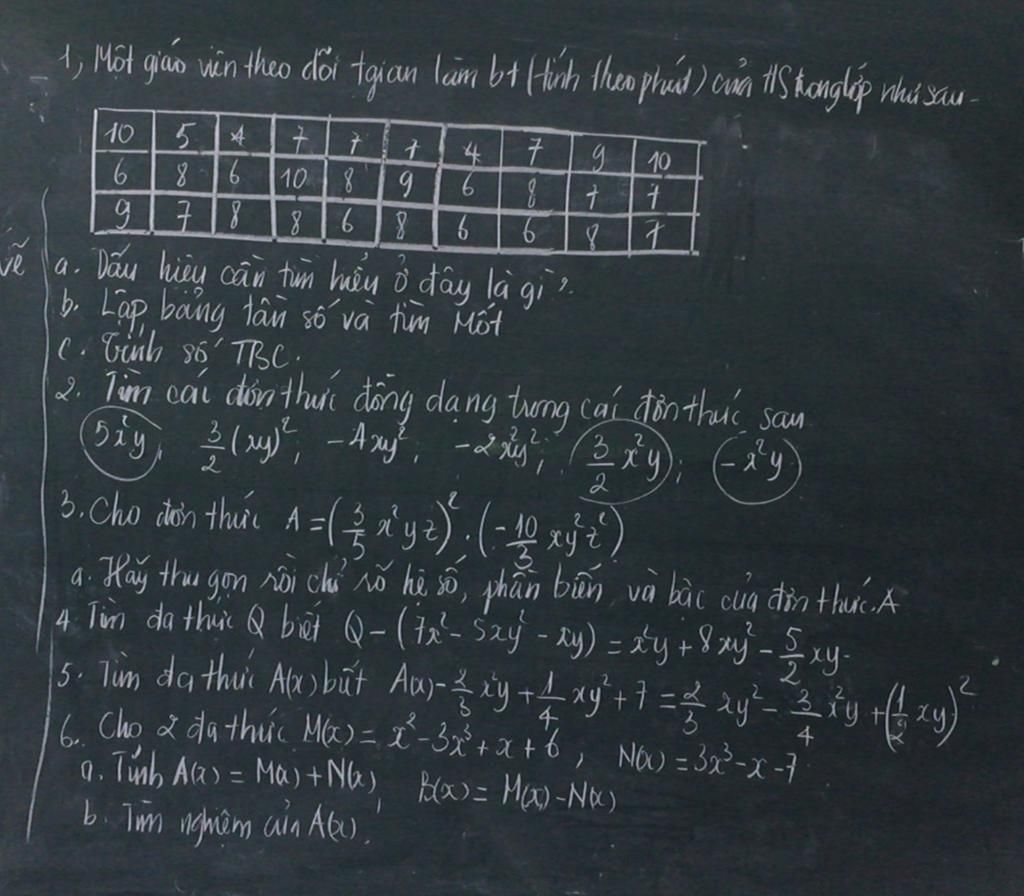 1, Một giáo viên theo dõi tgian làm bt (tính theo phút) của HS trong lớp như sau -
10 5 4 7 7 7 4 7 9 10
6 8 6 10 8 9 6 8 7 7
9 7 8 8 6 8 6 6 8 7
vẽ
a. Dấu hiệu cần tìm hiểu ở đây là gì?
b. Lập bảng tần số và tìm Mốt
c. Tính số TBC.
2. Tìm các đơn thức đồng dạng trong các đơn thức sau
5x²y, 3/2 (xy)², -4xy², -2x²y²; 3/2 x²y; -x²y
3. Cho đơn thức A = (3/5 x²yz)² . (-10/3 xy²z²)
a. Hãy thu gọn rồi chỉ rõ hệ số, phần biến và bậc của đơn thức A
4. Tìm đa thức Q biết Q - (7x² - 5xy² - xy) = x²y + 8xy² - 5/2 xy.
5. Tìm đa thức A(x) biết A(x) - 2/3 x²y + 1/4 xy² + 7 = 2/3 xy² - 3/4 x²y + (1/2 xy)²
6. Cho 2 đa thức M(x) = x² - 3x³ + x + 6, N(x) = 3x³ - x - 7
a. Tính A(x) = M(x) + N(x), B(x) = M(x) - N(x)
b. Tìm nghiệm của A(x).